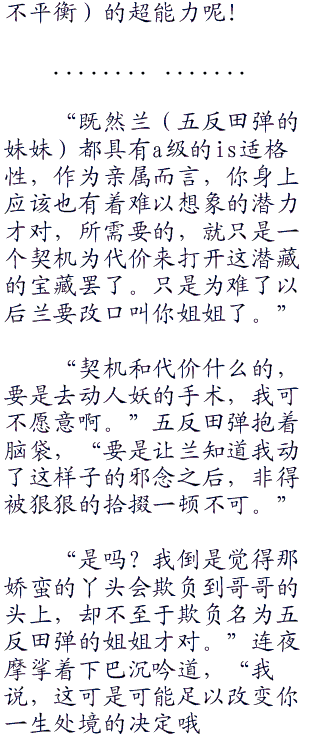 不平衡）的超能力呢！
........ .......
“既然兰（五反田弹的
妹妹）都具有a级的is适格
性，作为亲属而言，你身上
应该也有着难以想象的潜力
才对，所需要的，就只是一
个契机为代价来打开这潜藏
的宝藏罢了。只是为难了以
后兰要改口叫你姐姐了。”
“契机和代价什么的，
要是去动人妖的手术，我可
不愿意啊。”五反田弹抱着
脑袋，“要是让兰知道我动
了这样子的邪念之后，非得
被狠狠的拾掇一顿不可。”
“是吗？我倒是觉得那
娇蛮的丫头会欺负到哥哥的
头上，却不至于欺负名为五
反田弹的姐姐才对。”连夜
摩挲着下巴沉吟道，“我
说，这可是可能足以改变你
一生处境的决定哦